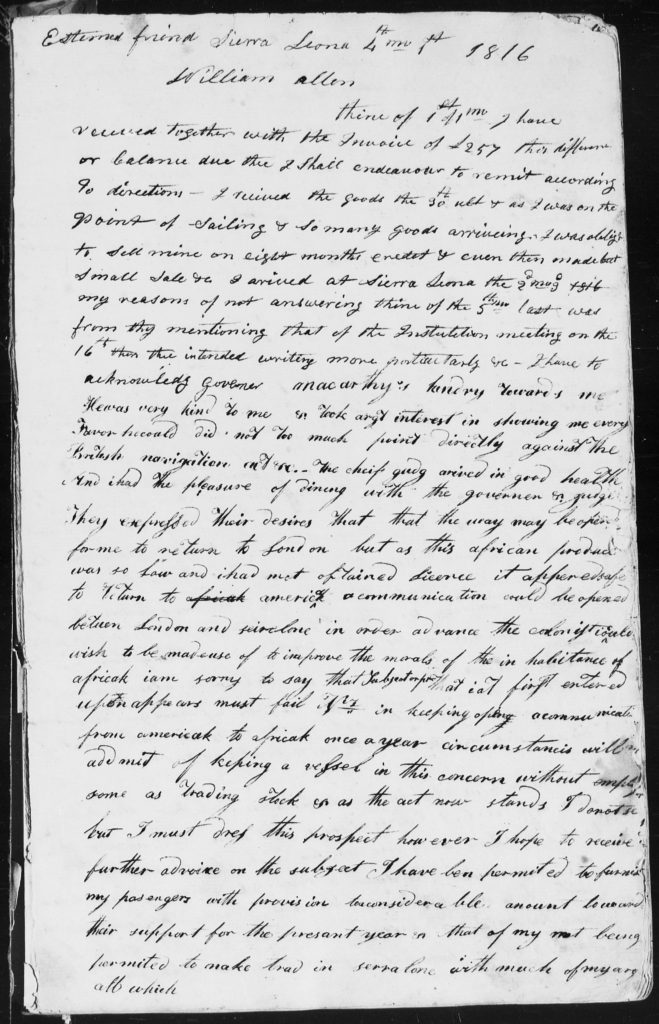 Esteemd friend Sierra Leona 4th mo 1st 1816
William allen
thine of 1st/1mo I have
received together with the Invoice of £257 this differen
or balance due thee I Shall endeavour to remit according
To directions — I recived the goods the 30th ult & as I was on the
point of Sailing & So many goods arriveing. I was obligd
to Sell mine on eight months credet & even then made but
Small Sale &c I arived at Sierra Leona the 1816
my reasons of not answering thine of the 5th mo last was
from thy mentioning that of the Institution meeting on the
16th then thee intended writing more particularly &c — I have to
acknowledg Governer macarthy's kindry towards me
He was very kind to me & took a interest in showing me every
Favor he could did not too much point directly against the
British navigation act &c. -- The cheif gudg arived in good health
And i had the pleasure of dining with the governer & gudge
They expressed their desires that that the way may be open
for me to return to London but as this african produce
was so Low and i had not obtained licence it appered safe
to return to africak americk a communication could be opened
betuen London and in order advance the colonist i could
wish to be made use of to improve the morals of the in habitance of
africak iam sorry to say that Subject or that i at first entered
upon appears must fail in keeping oping a communicati
from americak to africak once a year circumstancis will
addmit of keping a vessel in this concern without
some as trading stock & as the act now stands I do not se
but I must this prospect however I hope to receive
further advoice on the subject I have ben permited to furnis
my pasengers with provision to considerable amount towards
their support for the presant year & that of my not being
permited to make trad in serralone with much of my
all which